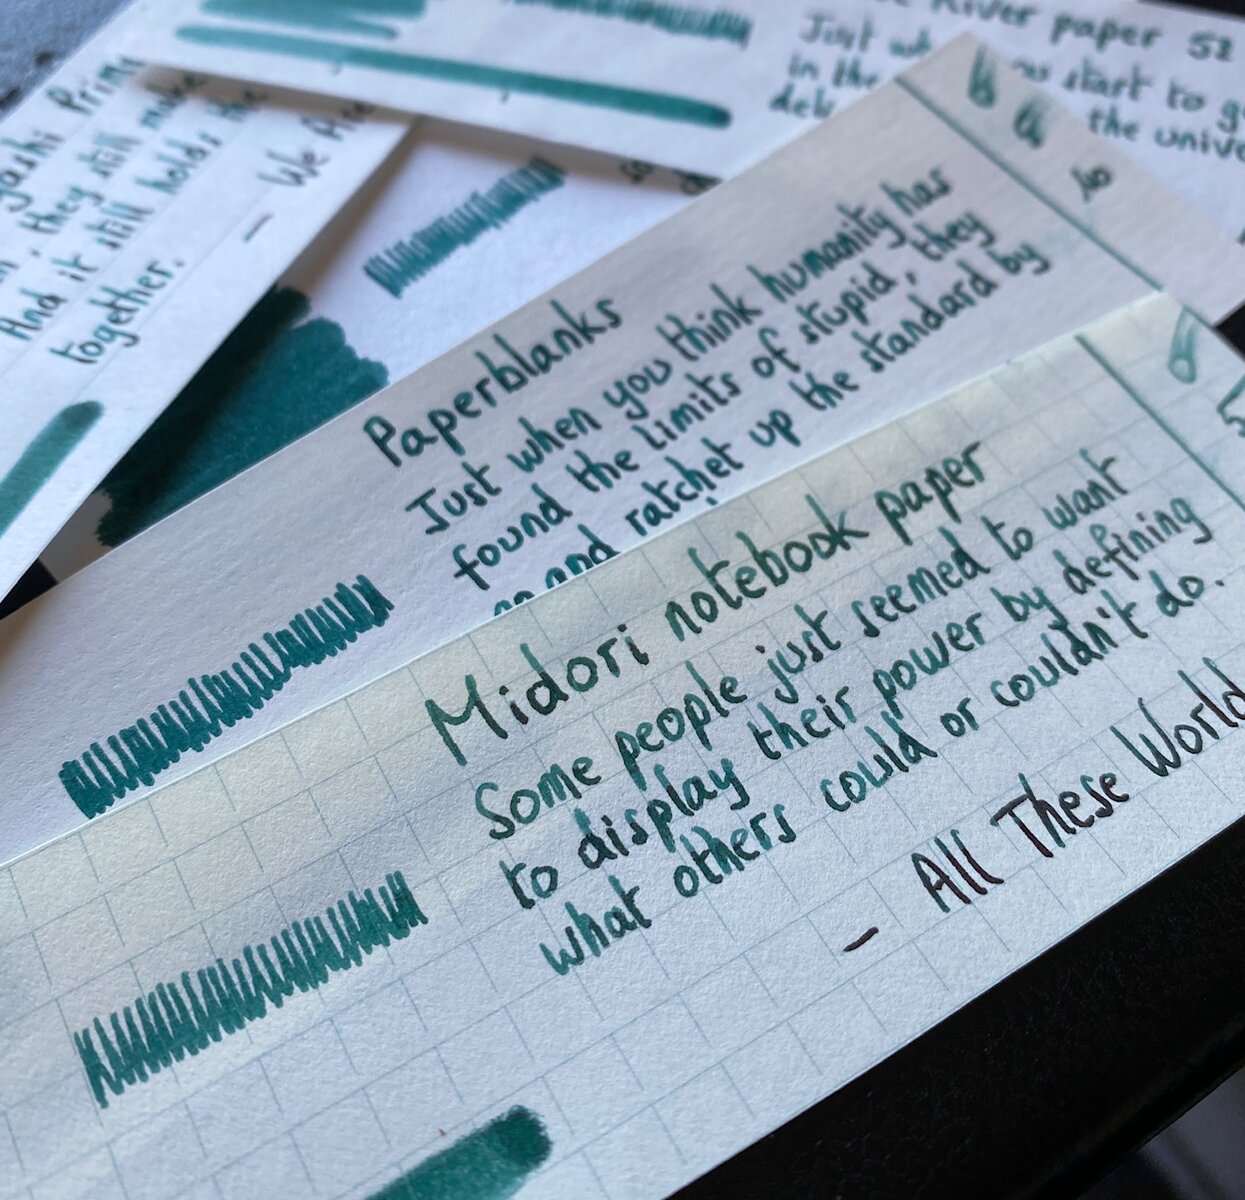 River paper 52
Just
start to
in the
the
Prim
, they still make
And it still holds the
together.
— We Are
Paperblanks
Just when you think humanity has
found the limits of stupid, they
go and ratchet up the standard by
Midori notebook paper
Some people just seemed to want
to display their power by defining
what others could or couldn't do.
— All These World